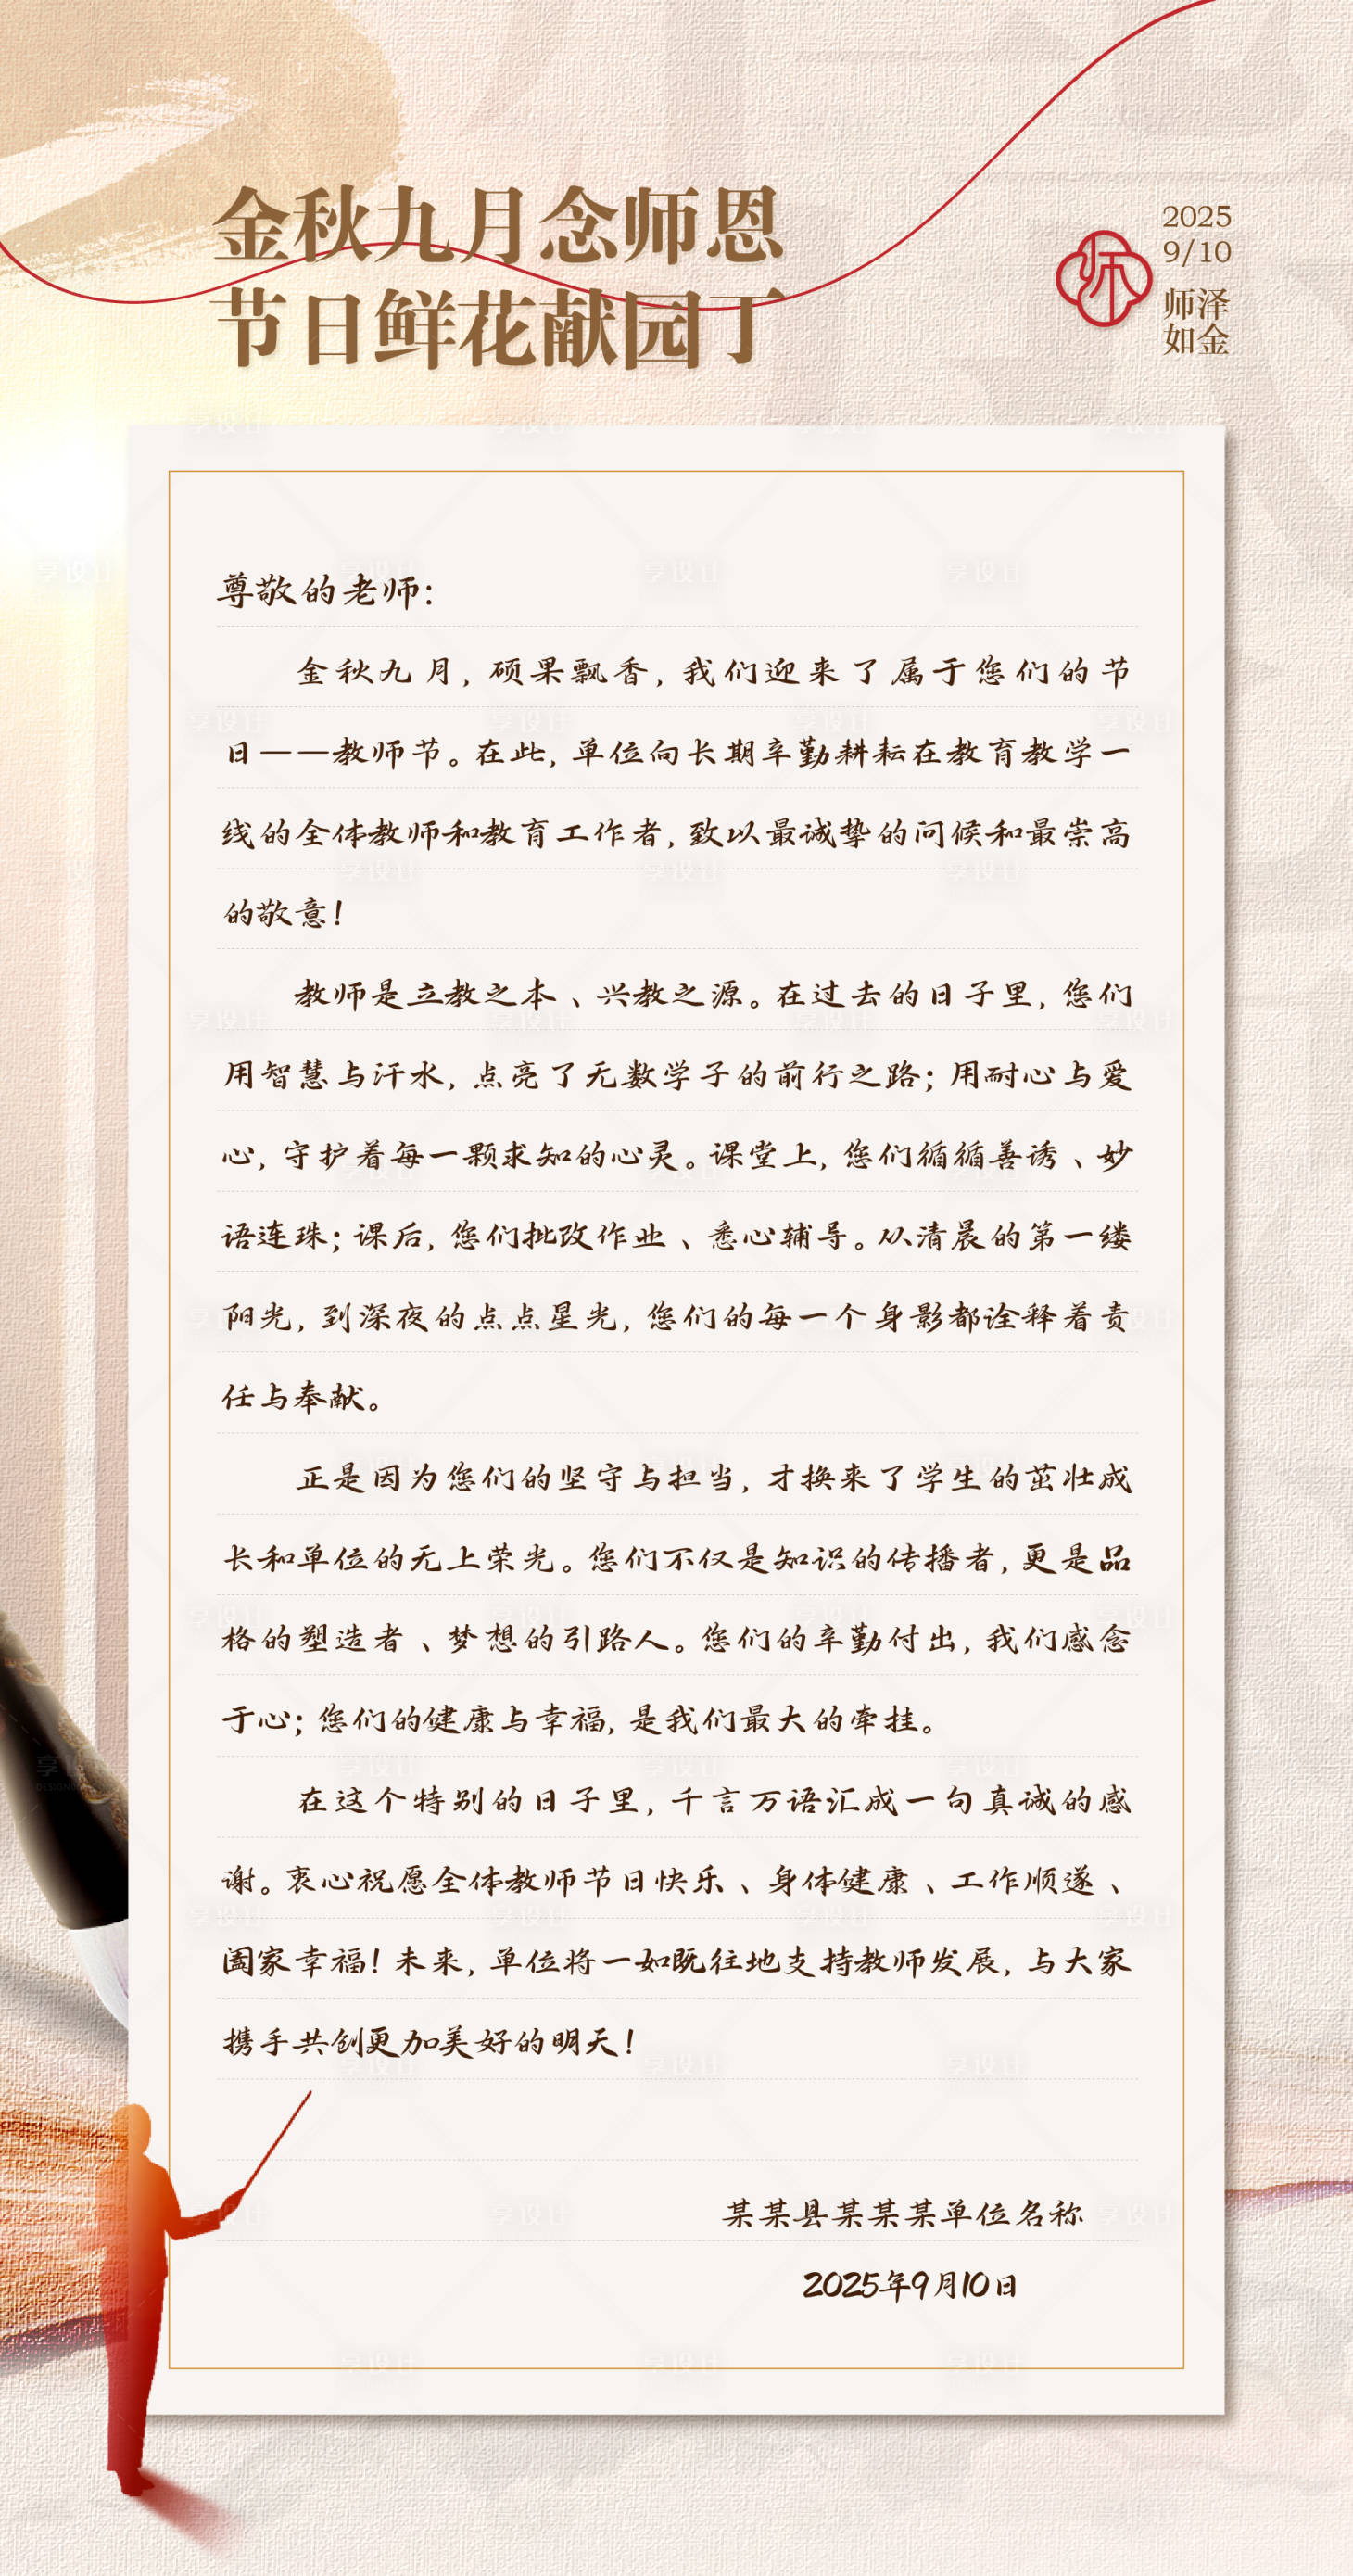 金秋九月念师恩
节日鲜花献园丁
师
2025
9/10
师泽
如金
尊敬的老师：
金秋九月，硕果飘香，我们迎来了属于您们的节
日——教师节。在此，单位向长期辛勤耕耘在教育教学一
线的全体教师和教育工作者，致以最诚挚的问候和最崇高
的敬意！
教师是立教之本、兴教之源。在过去的日子里，您们
用智慧与汗水，点亮了无数学子的前行之路；用耐心与爱
心，守护着每一颗求知的心灵。课堂上，您们循循善诱、妙
语连珠；课后，您们批改作业、悉心辅导。从清晨的第一缕
阳光，到深夜的点点星光，您们的每一个身影都诠释着责
任与奉献。
正是因为您们的坚守与担当，才换来了学生的茁壮成
长和单位的无上荣光。您们不仅是知识的传播者，更是品
格的塑造者、梦想的引路人。您们的辛勤付出，我们感念
于心；您们的健康与幸福，是我们最大的牵挂。
在这个特别的日子里，千言万语汇成一句真诚的感
谢。衷心祝愿全体教师节日快乐、身体健康、工作顺遂、
阖家幸福！未来，单位将一如既往地支持教师发展，与大家
携手共创更加美好的明天！
某某县某某某单位名称
2025年9月10日